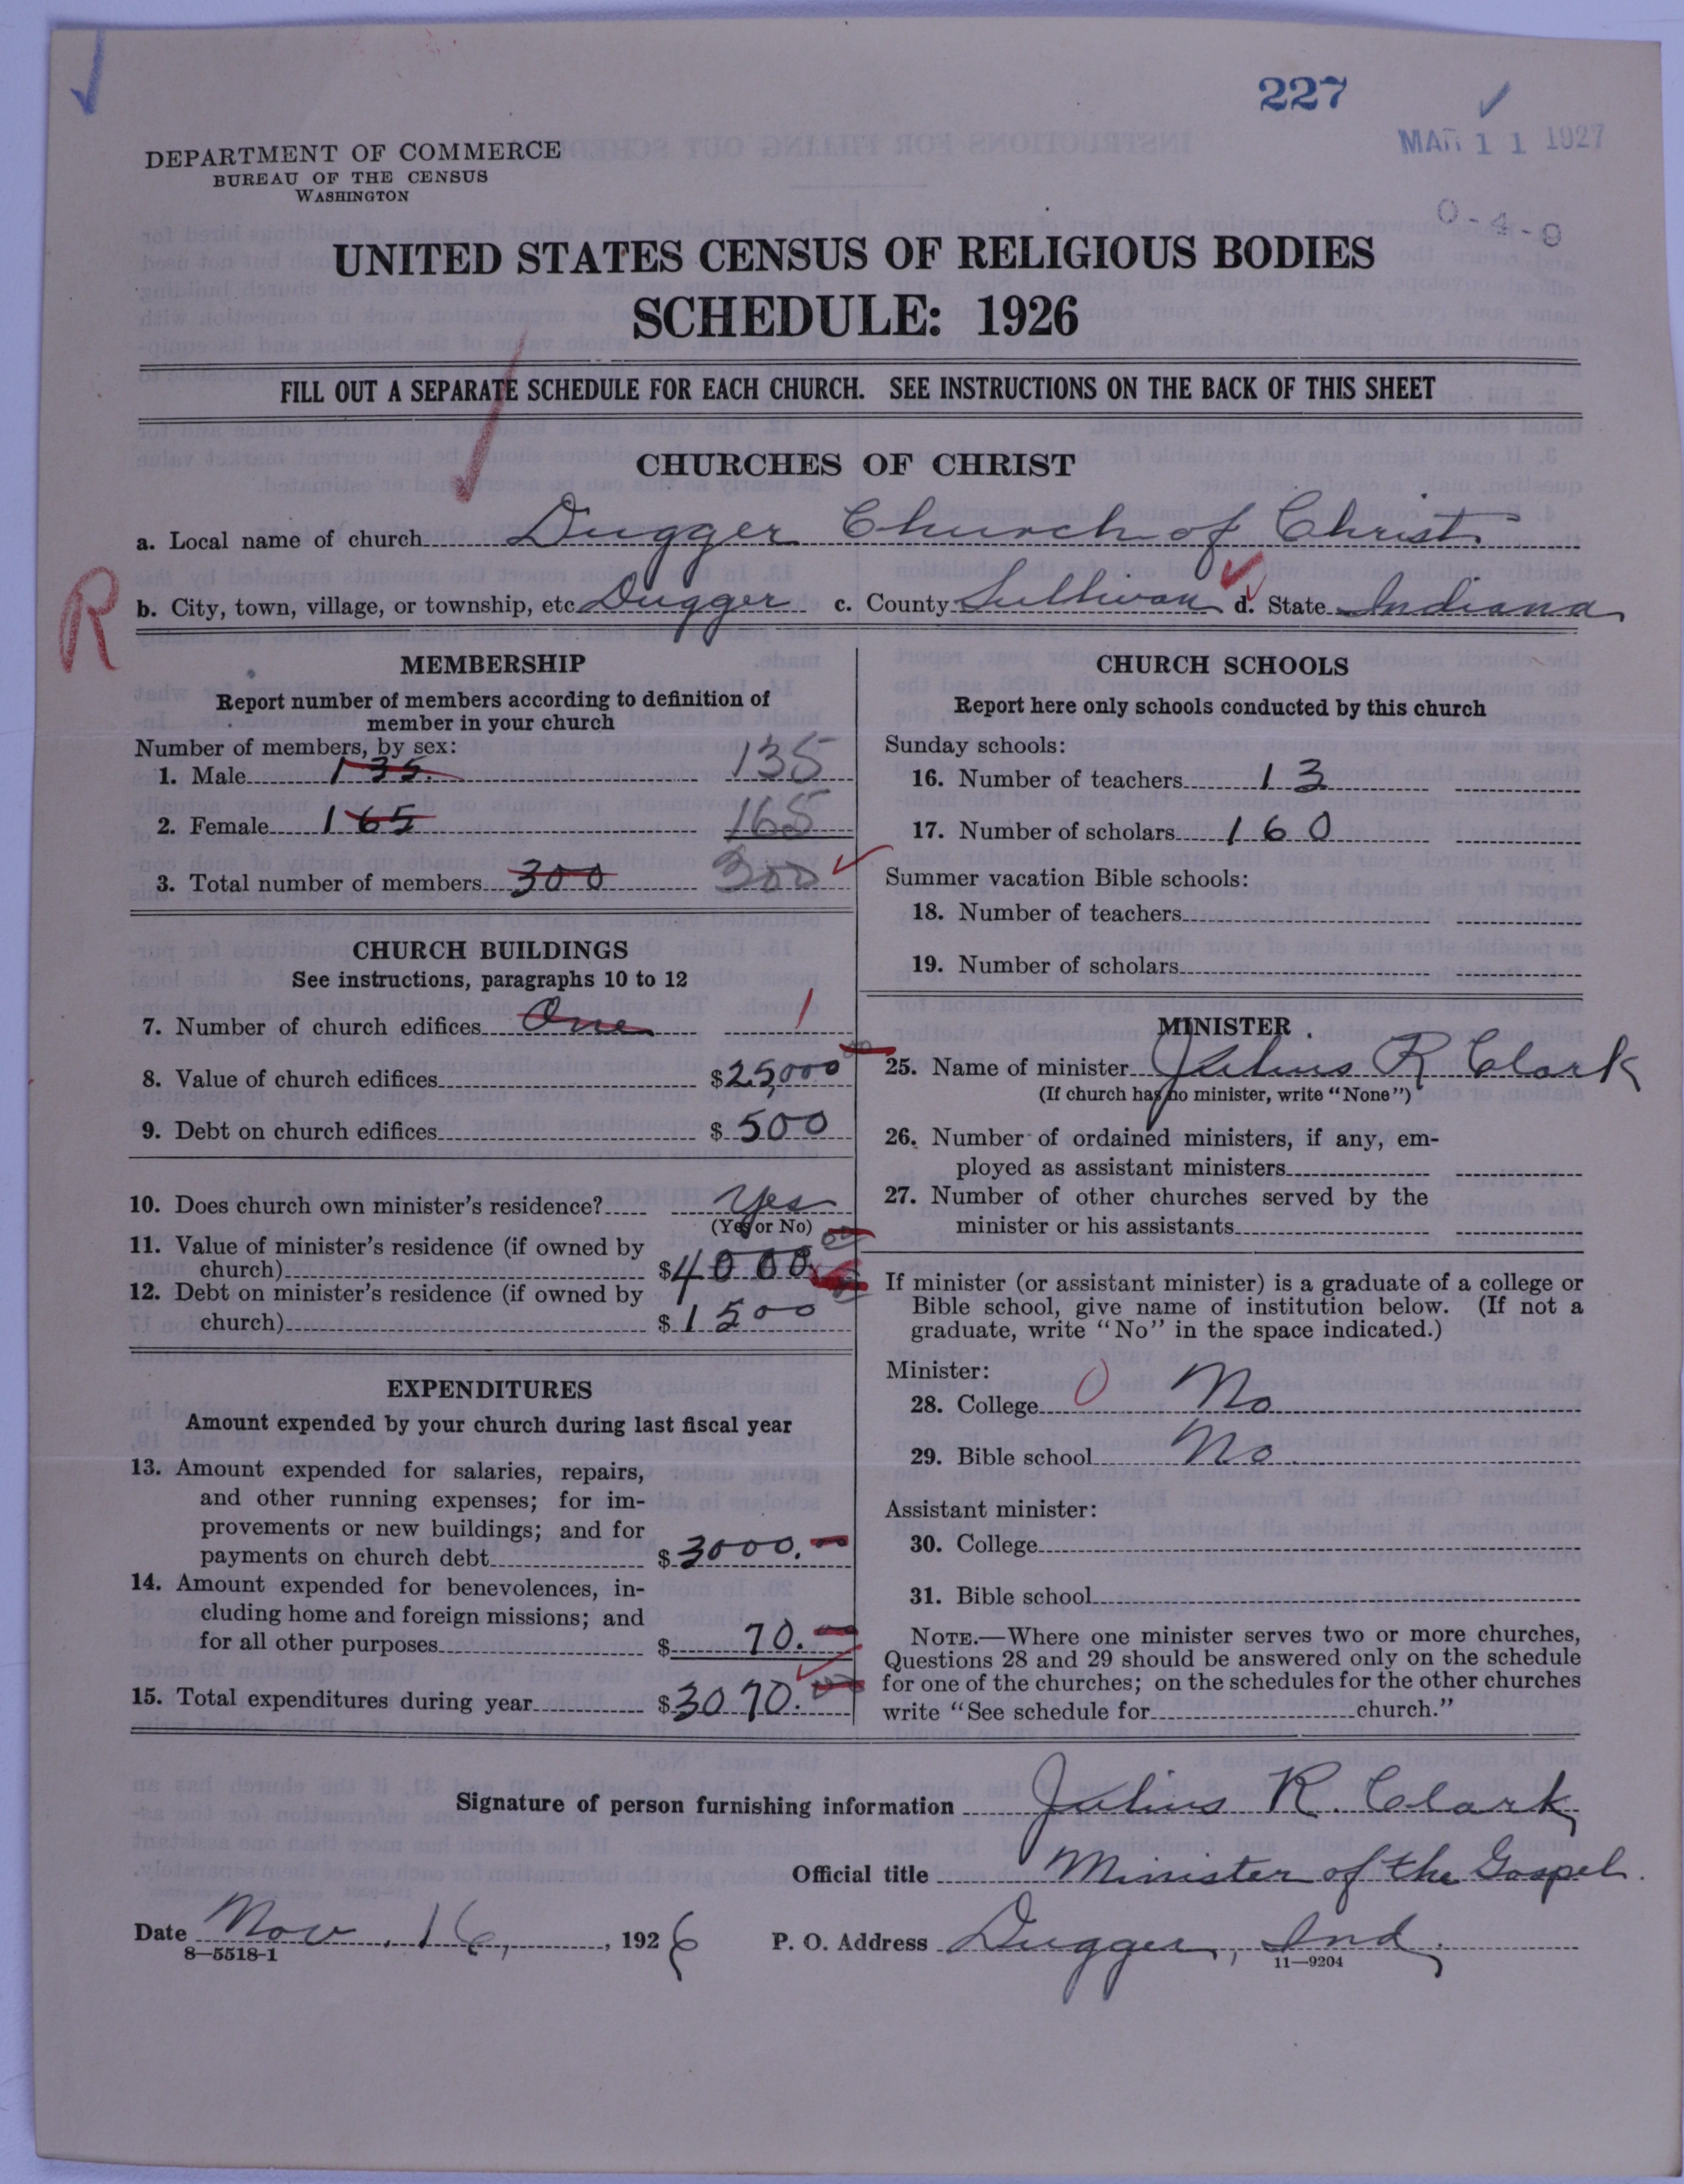 227
MAR 11 1927
0-4-9
DEPARTMENT OF COMMERCE
BUREAU OF THE CENSUS
WASHINGTON
UNITED STATES CENSUS OF RELIGIOUS BODIES
SCHEDULE: 1926
FILL OUT A SEPARATE SCHEDULE FOR EACH CHURCH. SEE INSTRUCTIONS ON THE BACK OF THIS SHEET
CHURCHES OF CHRIST
a. Local name of church Dugger Church of Christ.
R
b. City, town, village, or township, etc Dugger c. County Sullivan d. State Indiana
MEMBERSHIP
Report number of members according to definition of
member in your church
Number of members, by sex:
1. Male 135. 135
2. Female 165 165
3. Total number of members 300 300
CHURCH BUILDINGS
See instructions, paragraphs 10 to 12
7. Number of church edifices One 1
8. Value of church edifices $25,000 00
9. Debt on church edifices $500
10. Does church own minister's residence? Yes
(Yes or No)
11. Value of minister's residence (if owned by
church) $4000.
12. Debt on minister's residence (if owned by
church) $1500
EXPENDITURES
Amount expended by your church during last fiscal year
13. Amount expended for salaries, repairs,
and other running expenses; for im-
provements or new buildings; and for
payments on church debt $3000.
14. Amount expended for benevolences, in-
cluding home and foreign missions; and
for all other purposes $70.
15. Total expenditures during year $3070.
CHURCH SCHOOLS
Report here only schools conducted by this church
Sunday schools:
16. Number of teachers 13
17. Number of scholars 160
Summer vacation Bible schools:
18. Number of teachers
19. Number of scholars
MINISTER
25. Name of minister Julius R Clark
(If church has no minister, write "None")
26. Number of ordained ministers, if any, em-
ployed as assistant ministers
27. Number of other churches served by the
minister or his assistants
If minister (or assistant minister) is a graduate of a college or
Bible school, give name of institution below. (If not a
graduate, write "No" in the space indicated.)
Minister:
28. College 0 No
29. Bible school No.
Assistant minister:
30. College
31. Bible school
NOTE.—Where one minister serves two or more churches,
Questions 28 and 29 should be answered only on the schedule
for one of the churches; on the schedules for the other churches
write "See schedule for church."
Signature of person furnishing information Julius R. Clark
Official title Minister of the Gospel.
Date Nov. 16, 1926 P. O. Address Dugger, Ind.
8—5518-1 11—9204